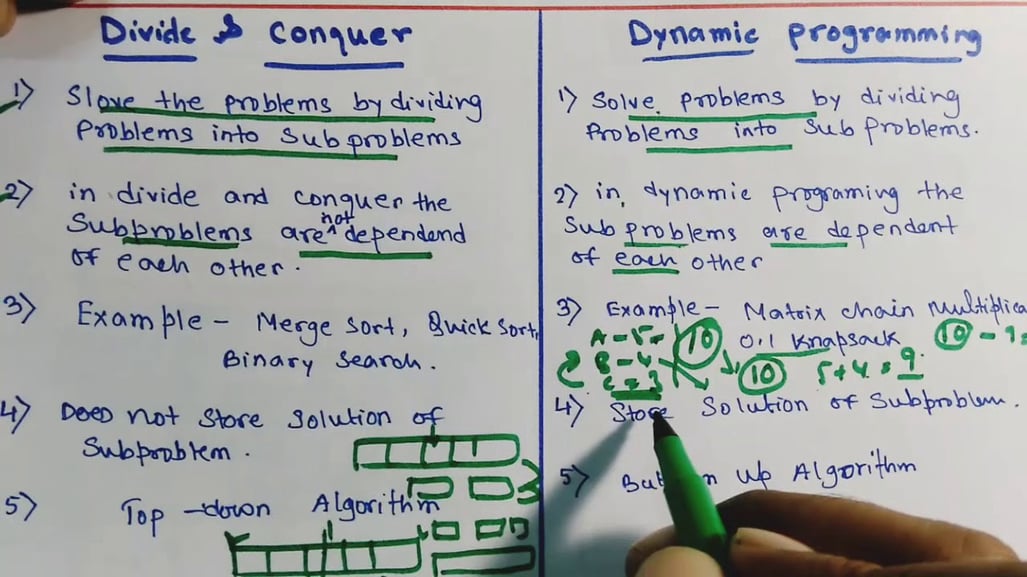 Divide & Conquer
1) Slove the problems by dividing
Problems into Subproblems
2) in divide and conquer the
Subproblems are not dependend
of each other.
3) Example - Merge Sort, Quick Sort,
Binary Search.
4) Does not Store Solution of
Subproblem.
5) Top-down Algorithm
Dynamic Programming
1) Solve problems by dividing
Problems into Sub Problems.
2) in, dynamic programing the
Sub problems are dependent
of each other
3) Example - Matrix chain Multiplica
0,1 Knapsack
A - 5 -
B - 4
C = 3
10
10
5 + 4 = 9
10 - 9 =
4) Store Solution of Subproblem.
5) up Algorithm